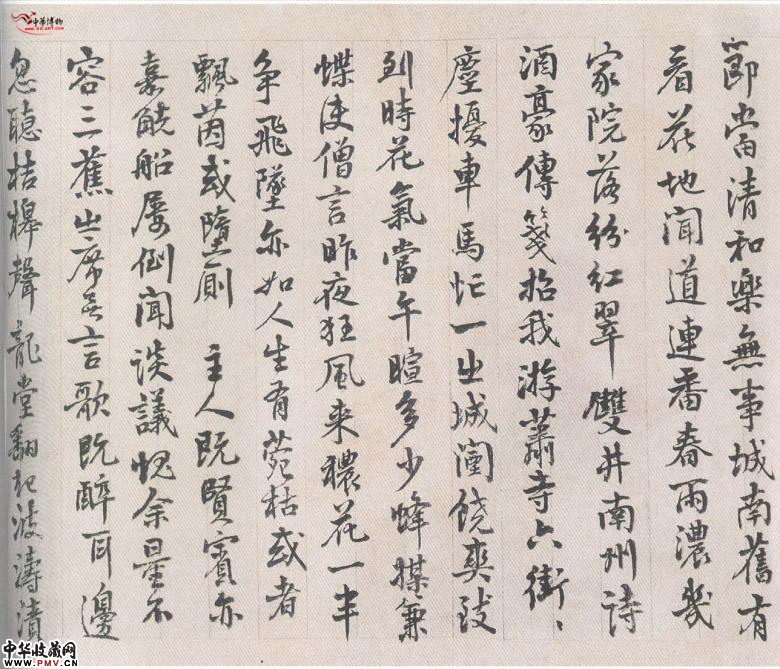 節當清和樂無事城南舊有
看花地聞道連番春雨濃幾
家院落紛紅翠雙井南州詩
酒豪傳箋招我游蕭寺六街、
塵擾車馬忙一出城闉饒爽致
到時花氣當午暄多少蜂媒兼
蝶使僧言昨夜狂風来穠花一半
争飛墜亦如人生有菀枯或者
飄茵或墮廁 主人既賢賓亦
嘉觥船屡倒聞談議愧余量不
容三蕉出席無言歌既醉耳邊
忽聽桔槔聲龍堂翻起波濤漬
中華博物
中华收藏网
www.PMV.CN